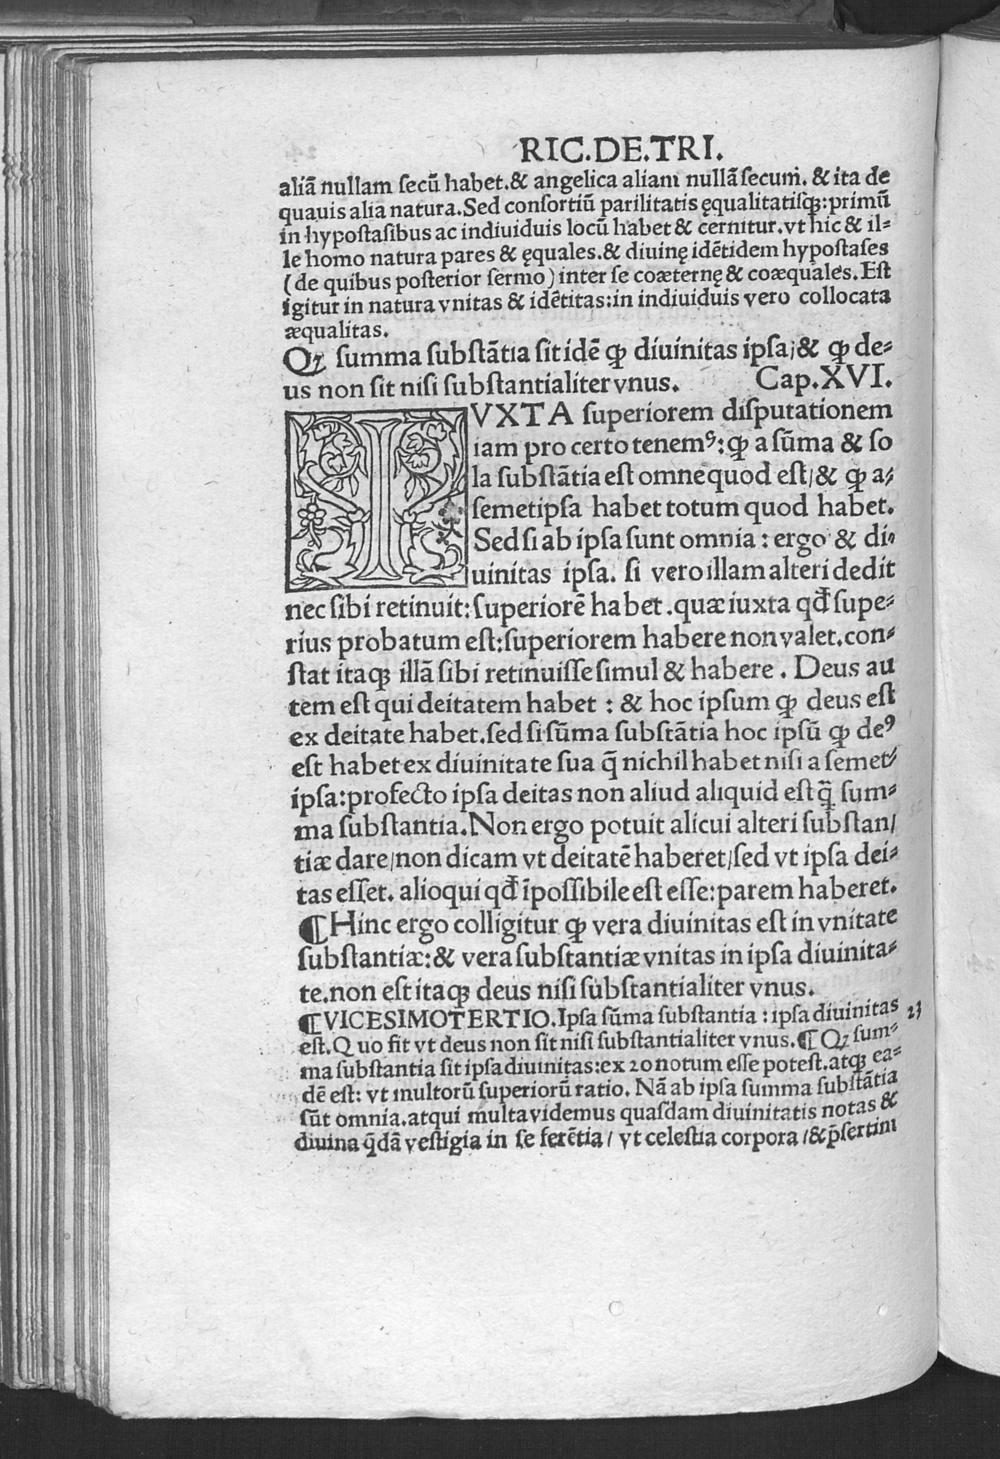 RIC.DE.TRI.
aliā nullam secū habet.& angelica aliam nullā secum. & ita de
quauis alia natura.Sed consortiū parilitatis ęqualitatisq;:primū
in hypostasibus ac indiuiduis locū habet & cernitur.vt hic & il-
le homo natura pares & ęquales.& diuinę idētidem hypostases
(de quibus posterior sermo) inter se coæternę & coæquales.Est
igitur in natura vnitas & idētitas:in indiuiduis vero collocata
æqualitas.
Qꝫ summa substātia sit idē ꝙ diuinitas ipsa;& ꝙ de-
us non sit nisi substantialiter vnus. Cap.XVI.
IVXTA superiorem disputationem
iam pro certo tenemꝰ:ꝙ a sūma & so
la substātia est omne quod est/& ꝙ a-
semetipsa habet totum quod habet.
Sed si ab ipsa sunt omnia : ergo & di-
uinitas ipsa. si vero illam alteri dedit
nec sibi retinuit:superiorē habet .quæ iuxta qđ supe-
rius probatum est:superiorem habere non valet.con-
stat itaq; illā sibi retinuisse simul & habere . Deus au
tem est qui deitatem habet : & hoc ipsum ꝙ deus est
ex deitate habet.sed si sūma substātia hoc ipsū ꝙ deꝰ
est habet ex diuinitate sua q̄ nichil habet nisi a semet-
ipsa:profecto ipsa deitas non aliud aliquid est q̄ sum-
ma substantia.Non ergo potuit alicui alteri substan/
tiæ dare/non dicam vt deitatē haberet/sed vt ipsa dei-
tas esset. alioqui qđ īpossibile est esse:parem haberet.
¶Hinc ergo colligitur ꝙ vera diuinitas est in vnitate
substantiæ:& vera substantiæ vnitas in ipsa diuinita-
te.non est itaq; deus nisi substantialiter vnus.
¶VICESIMOTERTIO.Ipsa sūma substantia : ipsa diuinitas 23
est.Quo fit vt deus non sit nisi substantialiter vnus.¶Qꝫ sum-
ma substantia sit ipsa diuinitas:ex 20 notum esse potest.atq; ea-
dē est: vt multorū superiorū ratio. Nā ab ipsa summa substātia
sūt omnia.atqui multa videmus quasdam diuinitatis notas &
diuina q̄dā vestigia in se ferētia/ vt celestia corpora /& p̄sertim